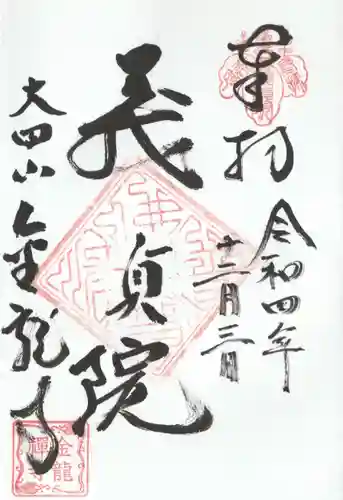 奉拝
令和四年
十二月三日
義貞院
大田山
金龍寺
金龍
禅寺